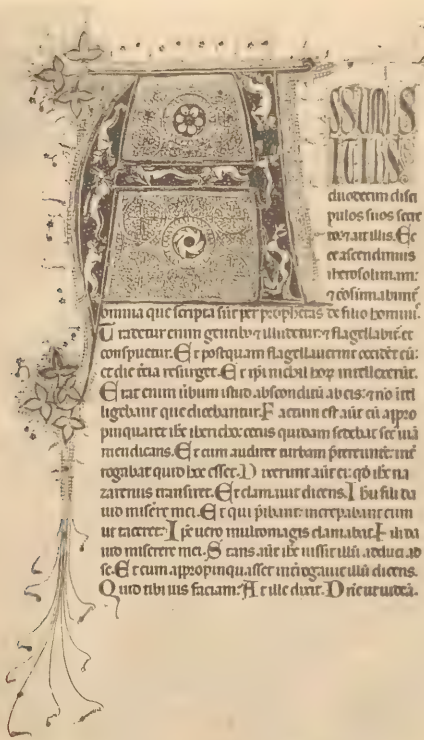 ASSUMPS
IT IHS
duodecim disci
pulos suos secre
to. ⁊ ait illis. Ec
ce ascendimus
iherosolimam:
⁊ cōsumabunt̄
omnia que scripta sūt per prophetas de filio homini᷒.
Tradetur enim gentib᷒ ⁊ illudetur. ⁊ flagellabit̄ et
conspuetur. Et postquam flagellauerint occidēt eū:
et die t̄cia resurget. Et ip̄i nichil hoꝝ intellexerūt.
Erat enim ūbum istud absconditū ab eis: ⁊ nō intel
ligebant que dicebantur. Factum est aūt cū appro
pinquaret ihc̄ ihericho: cecus quidam sedebat sec᷒ uiā
mendicans. Et cum audiret turbam p̄tereuntē: int̄
rogabat quid hoc esset. Dixerunt aūt ei: qd̄ ihc̄ na
zarenus transiret. Et clamauit dicens. Ihū fili da
uid miserere mei. Et qui p̄ibant: increpabant eum
ut taceret. Ip̄e uero multomagis clamabat. Fili da
uid miserere mei. Stans aūt ihc̄ iussit illū adduci ad
se. Et cum appropinquasset int̄rogauit illū dicens.
Quid tibi uis faciam: At ille dixit. Dn̄e ut uideā.